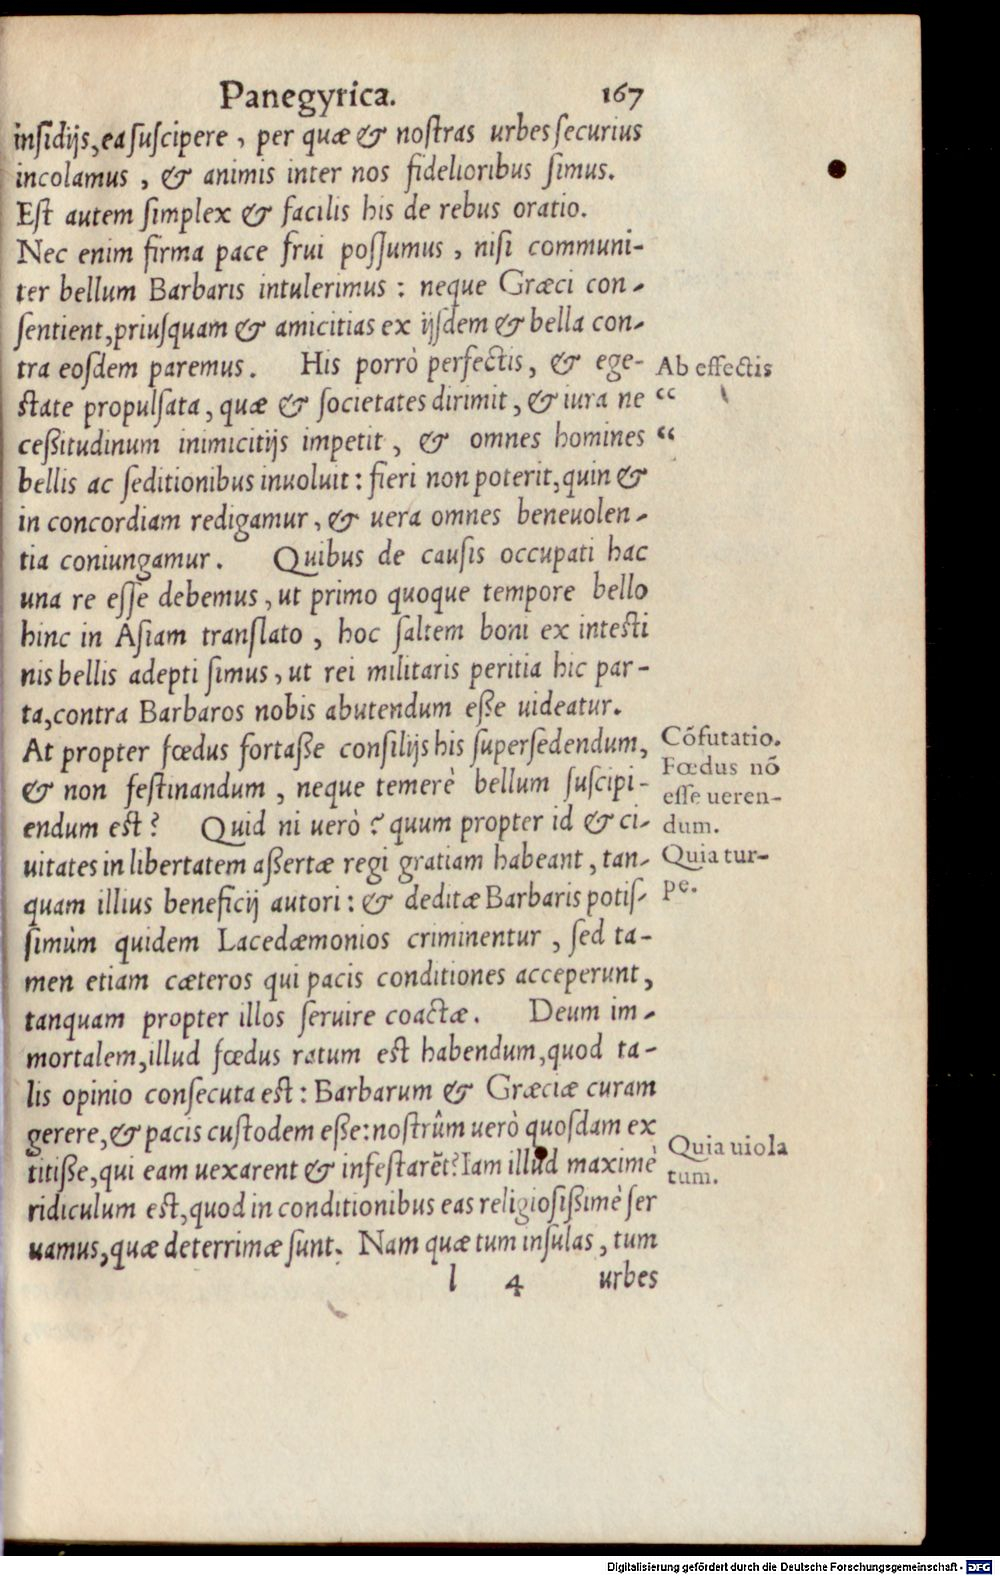 Panegyrica. 167
inſidijs, ea ſuſcipere, per quæ & noſtras urbes ſecurius
incolamus, & animis inter nos fidelioribus ſimus.
Eſt autem ſimplex & facilis his de rebus oratio.
Nec enim firma pace frui poſſumus, niſi communi-
ter bellum Barbaris intulerimus: neque Græci con-
ſentient, priuſquam & amicitias ex ijſdem & bella con-
tra eoſdem paremus. His porrò perfectis, & ege-
Ab effectis
ſtate propulſata, quæ & ſocietates dirimit, & iura ne
“
ceßitudinum inimicitijs impetit, & omnes homines
“
bellis ac ſeditionibus inuoluit: fieri non poterit, quin &
in concordiam redigamur, & uera omnes beneuolen-
tia coniungamur. Quibus de cauſis occupati hac
una re eſſe debemus, ut primo quoque tempore bello
hinc in Aſiam tranſlato, hoc ſaltem boni ex inteſti
nis bellis adepti ſimus, ut rei militaris peritia hic par-
ta, contra Barbaros nobis abutendum eße uideatur.
At propter fœdus fortaße conſilijs his ſuperſedendum,
Cõfutatio.
Fœdus nõ
& non feſtinandum, neque temerè bellum ſuſcipi-
eſſe ueren-
endum eſt? Quid ni uerò? quum propter id & ci-
dum.
uitates in libertatem aßertæ regi gratiam habeant, tan-
Quia tur-
quam illius beneficij autori: & deditæ Barbaris potiſ-
pe.
ſimùm quidem Lacedæmonios criminentur, ſed ta-
men etiam cæteros qui pacis conditiones acceperunt,
tanquam propter illos ſeruire coactæ. Deum im-
mortalem, illud fœdus ratum eſt habendum, quod ta-
lis opinio conſecuta eſt: Barbarum & Græciæ curam
gerere, & pacis cuſtodem eße: noſtrûm uerò quoſdam ex
Quia uiola
titiße, qui eam uexarent & infeſtarẽt? Iam illud maximè
tum.
ridiculum eſt, quod in conditionibus eas religioſißimè ſer
uamus, quæ deterrimæ ſunt. Nam quæ tum inſulas, tum
l 4 urbes
Digitalisierung gefördert durch die Deutsche Forschungsgemeinschaft - DFG